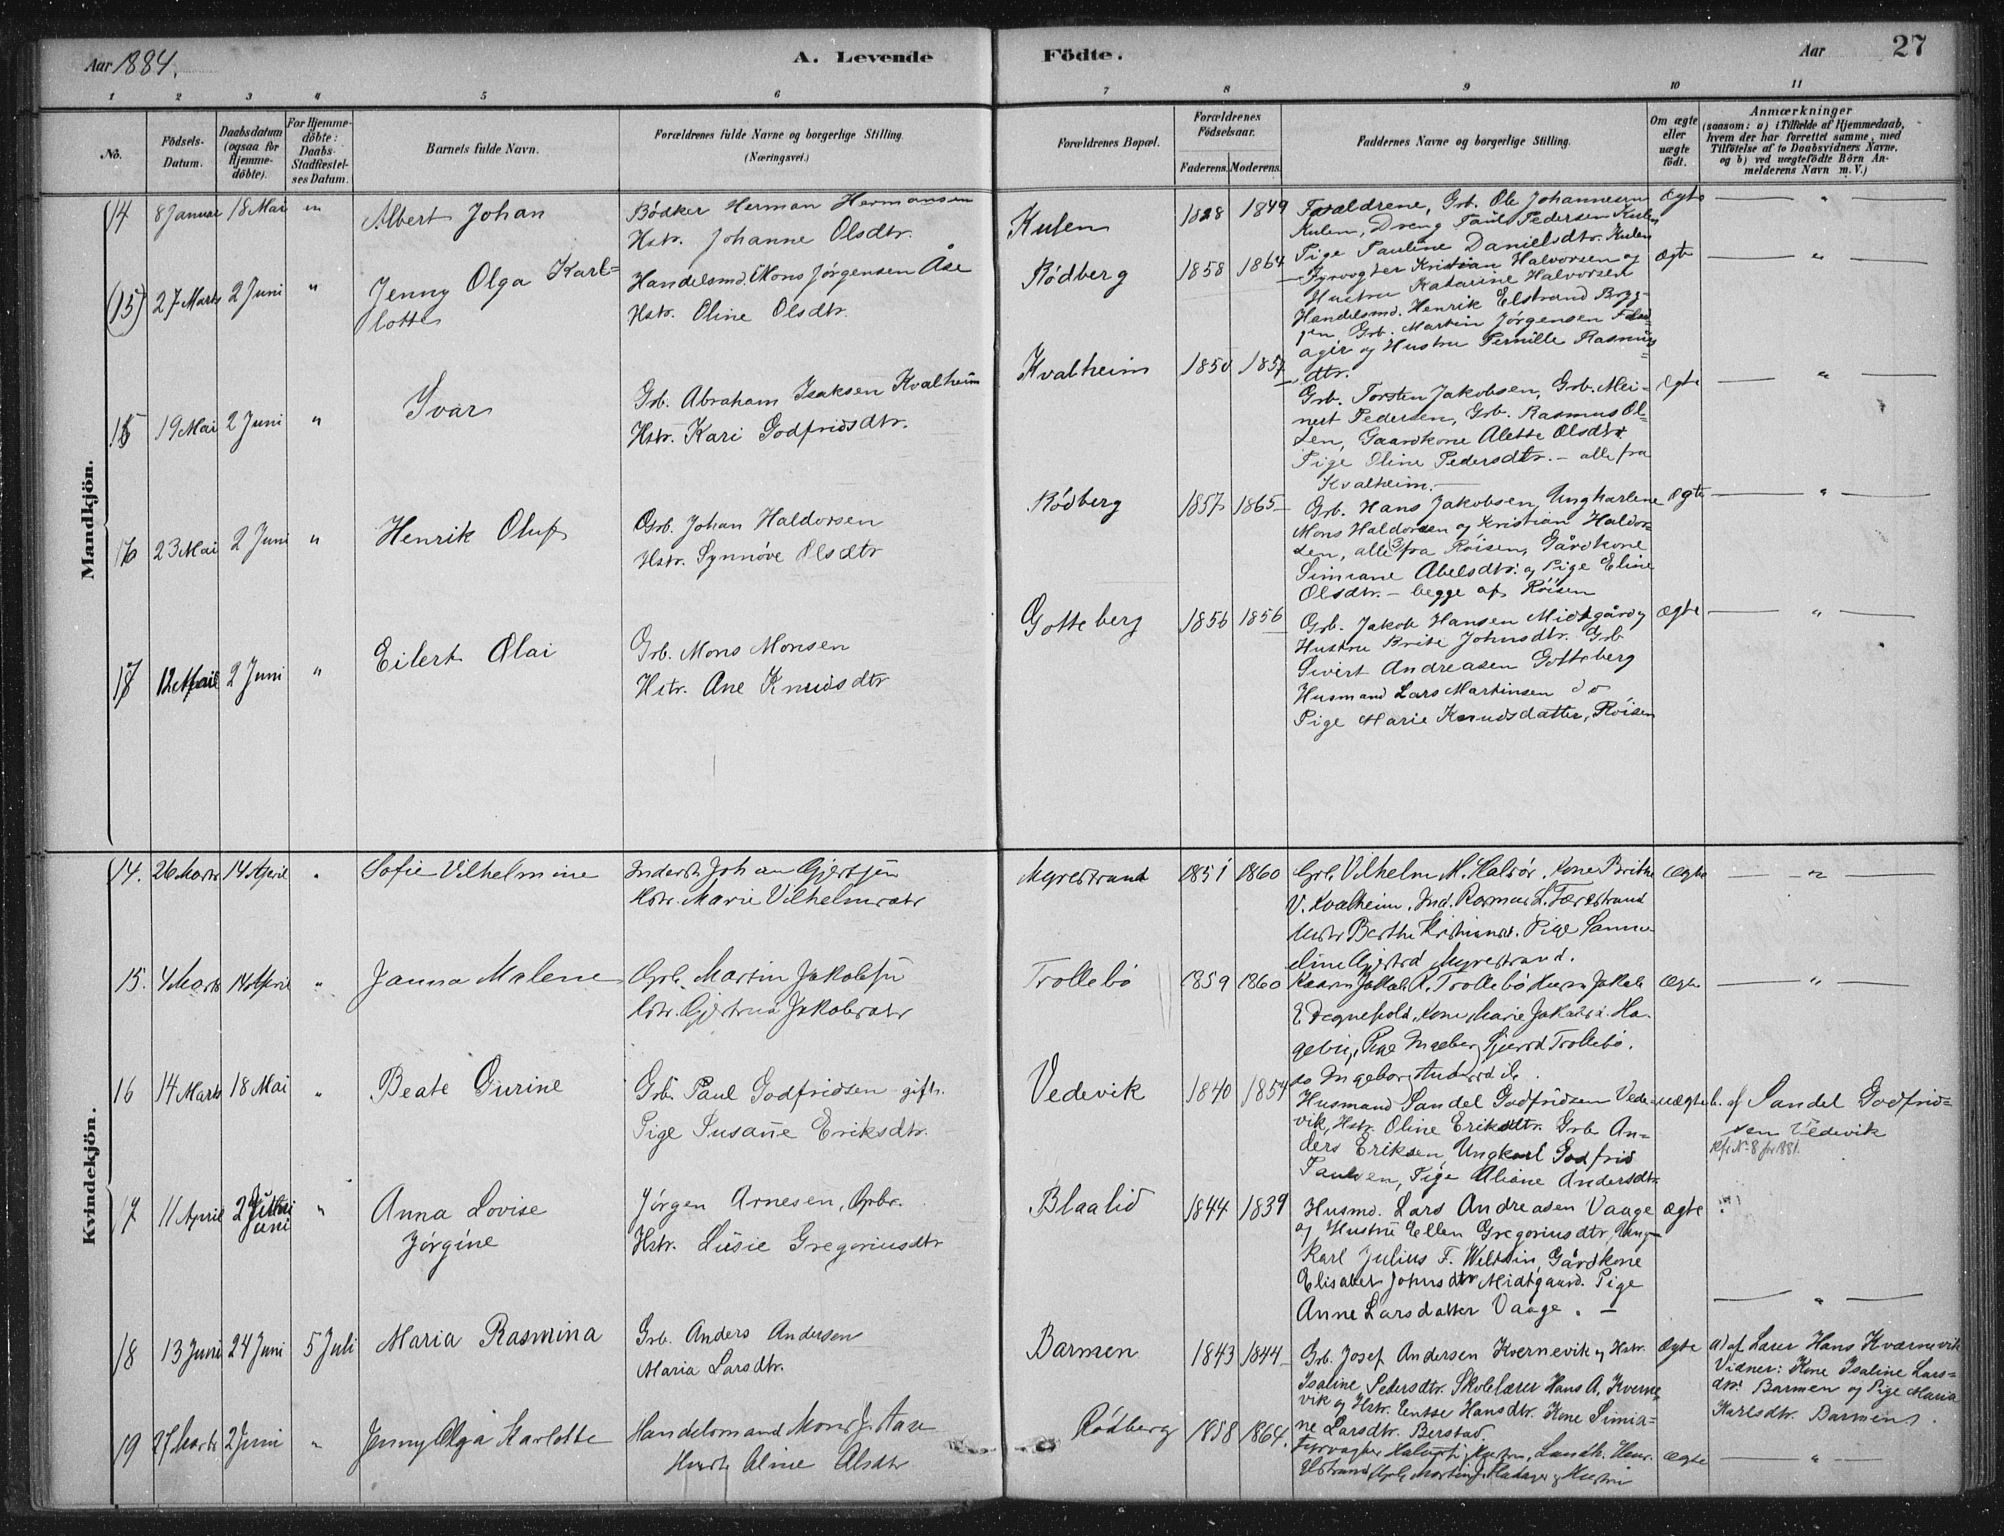 Aar 1884.
A. Levende
Födte.
Aar
27
1 2 3 4 5 6 7 8 9 10 11
No.
Födsels-
Datum.
Daabsdatum
(ogsaa for
Hjemme-
döbte).
For Hjemme-
döbte:
Daabs-
Stadfæstel-
ses Datum.
Barnets fulde Navn.
Forældrenes fulde Navne og borgerlige Stilling.
(Næringsvei.)
Forældrenes Bopæl.
Forældrenes
Födselsaar.
Faderens.
Moderens.
Faddernes Navne og borgerlige Stilling.
Om ægte
eller
uægte
født.
Anmærkninger
(saasom: a) i Tilfælde af Hjemmedaab,
hvem der har forrettet samme, med
Tilföielse af to Daabsvidners Navne,
og b) ved uægtefödte Börn An-
melderens Navn m. V.)
Mandkjön.
14 8 Januar 18 Mai " Albert Johan
Bödker Herman Hermansen
Hstr. Johanne Olsdtr.
Kulen 1828 1849
Forældrene, Grb. Ole Johannesen
Kulen, Dreng Paul Pedersen Kulen
Pige Pauline Danielsdtr. Kulen
ægte — " —
(15) 27 Marts 2 Juni " Jenny Olga Karl=
lotte
Handelsmd. Mons Jørgensen Åse
Hstr. Oline Olsdtr.
Rödberg 1858 1864
Fyrvogter Kristian Halvorsen og
Hustru Katarine Halvorsen
Handelsmd. Henrik Elstrand Bryg-
gen, Grb. Martin Jørgensen
og Hustru Pernille Rasmus
dtr.
ægte — " —
15 19 Mai 2 Juni " Ivar
Grb. Abraham Isaksen Kvalheim
Hstr. Kari Godfridsdtr.
Kvalheim 1850 1857
Grb. Torsten Jakobsen, Grb. Mei-
nert Pedersen, Grb. Rasmus Ol-
sen, Gaardkone Alette Olsdtr.
Pige Oline Pedersdtr. - alle fra
Kvalheim.
ægte — " —
16 23 Mai 2 Juni " Henrik Oluf
Grb. Johan Haldorsen
Hstr. Synnöve Olsdtr
Rödberg 1857 1865
Grb. Hans Jakobsen, Ungkarlene
Mons Haldorsen og Kristian Haldor-
sen, alle 3 fra Röisen, Gårdkone
Simiane Abelsdtr. og Pige Eline
Olsdtr. - begge af Röisen
ægte — " —
17 12 April 2 Juni " Eilert Olai
Grb. Mons Monsen
Hstr. Ane Knudsdtr
Gotteberg 1856 1856
Grb. Jakob Hansen Midtgård og
Hustru Brite Johnsdtr. Grb.
Sivert Andreasen Gotteberg
Husmand Lars Martinsen do
Pige Marie Knudsdatter, Röisen
ægte — " —
Kvindekjön.
14. 26 Marts 14 April " Sofie Vilhelmine
Inderst Johan Gjertsen
Hstr. Marie Vilhelmsdtr
Myrestrand 1851 1860
Grb. Vilhelm M. Halsör. Kone Brithe
V. Kvalheim. Ind. Rasmus L. Færestrand
Hustr Berthe Kristiansd. Pige Samu-
eline Gjertsd Myrestrand.
ægte — " —
15. 4 Marts 14 April " Janna Malene
Grb. Martin Jakobsen
Hstr. Gjertrud Jakobsdtr
Trollebö 1859 1860
Jakob A. Trollebö Jakob
E Degnepold, Kone Marie Jakobsd. Ha-
Pige Ingeborg Trollebö.
ægte — " —
16 14 Marts 18 Mai " Beate Gurine
Grb. Paul Godfridsen gift.
Pige Susanne Eriksdtr.
Vedevik 1840 1854
Husmand Sandel Godfridsen Vede-
vik, Hstr. Oline Eriksdtr. Grb. An-
ders Eriksen, Ungkarl Godfrid
Paulsen, Pige Aliane Andersdtr.
uægte
b. af Sandel Godfrid=
sen Vedevik
Kfr. No 8 for 1881.
17 11 April 2 Juni " Anna Lovise
Jørgine
Jørgen Arnesen, Grbr.
Hstr. Lusie Gregoriusdtr
Blaalid 1844 1839
Husmd. Lars Andreasen Vaage
og Hustru Ellen Gregoriusdtr, Ung-
karl Julius F. Wiltsin, Gårdkone
Elisabet Johnsdtr Midtgaard. Pige
Anne Larsdatter Vaage. —
ægte
— " —
18 13 Juni 24 Juni 5 Juli Maria Rasmina
Grb. Anders Andersen
Maria Larsdtr.
Barmen 1843 1844
Grb. Josef Andersen Kvernevik og Hstr.
Isaline Pedersdtr. Skolelærer Hans A. Kverne-
vik og Hstr. Entse Hansdtr. Kone Simia-
ne Larsdtr. Berstad
ægte
a) af Lærer Hans Kværnevik
Vidner: Kone Isaline Lars-
dtr. Barmen og Pige Maria
Karlsdtr. Barmen.
19 27 Marts 2 Juni " Jenny Olga Karlotte
Handelsmand Mons J. Aase
Hustr Oline Olsdtr
Rödberg 1858 1864.
Fyrvogter Halvorsen Hustru, Landh. Henr.
Elstrand, Grb. Martin J. og Hustru
ægte — " —